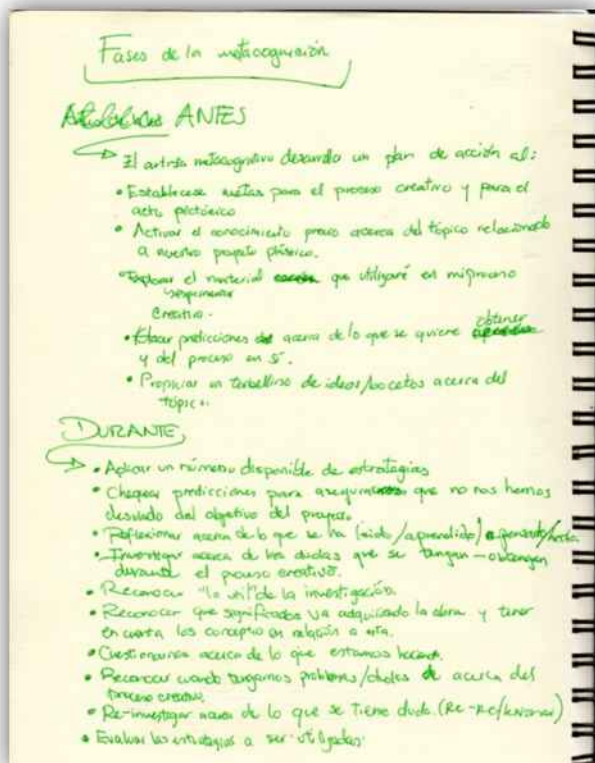 Fases de la metacognición
ANTES
El artista metacognitivo desarrolla un plan de acción al:
• Establecese metas para el proceso creativo y para el
acto pictórico
• Activar el conocimiento previo acerca del tópico relacionado
a nuestro proyecto plástico.
• Explorar el material que utilizaré en mi proceso
y experimentar
Creativo.
• Hacer predicciones acerca de lo que se quiere obtener
y del proceso en sí.
• Propiciar un torbellino de ideas/bocetos acerca del
tópico.
DURANTE
• Aplicar un número disponible de estrategias
• Chequear predicciones para asegurarnos que no nos hemos
desviado del objetivo del proyecto.
• Reflexionar acerca de lo que se ha leido/aprendido/pensado/hecho
• Investigar acerca de las dudas que se tengan – obtengan
durante el proceso creativo.
• Reconocer "lo util" de la investigación.
• Reconocer que significados va adquiriendo la obra y tener
en cuenta los conceptos en relación a esta.
• Cuestionarnos acerca de lo que estamos haciendo.
• Reconocer cuando tengamos problemas/dudas acerca del
proceso creativo.
• Re-investigar acerca de lo que se tiene duda. (Re-
• Evaluar las estrategias a ser utilizadas.